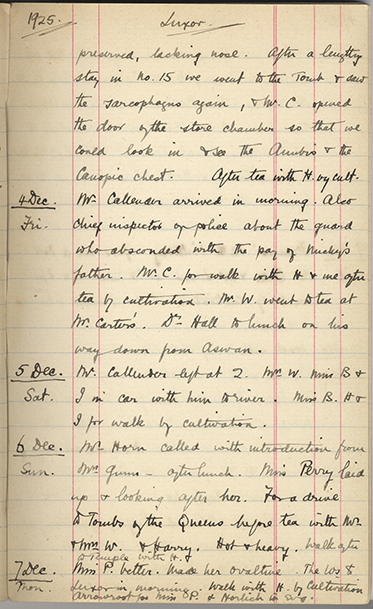 1925. Luxor
preserved, lacking nose. After a lengthy
stay in No. 15 we went to the Tomb & saw
the sarcophagus again, & Mr. C. opened
the door of the store chamber so that we
could look in & see the Anubis & the
Canopic chest. After tea with H. by cult.
4 Dec. Mr. Callender arrived in morning. Also
Fri. Chief inspector of police about the guard
who absconded with the pay of Mickey's
father. Mr. C. for walk with H & me after
tea by cultivation. Mr. W. went to tea at
Mr. Carter's. Dr. Hall to lunch on his
way down from Aswan.
5 Dec. Mr. Callender left at 2. Mrs W. Miss B &
Sat. I in car with him to river. Miss B. H &
I for walk by cultivation.
6 Dec. Mr Horn called with introduction from
Sun. Mr Gunn - after lunch. Miss Perry laid
up & looking after her. For a drive
to Tombs of the Queens before tea with Mr
& Mrs W. & Harry. Hot & heavy. Walk after
to Temple with H.
7 Dec Miss P. better. Made her ovaltine. The Ws &
Mon. Luxor in morning. Walk with H. by Cultivation
arrowroot for Miss P. & Horlick's